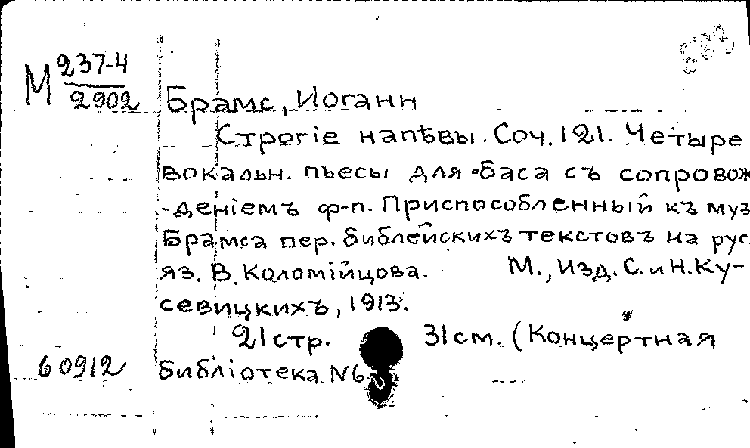 М 237-4
2902
Брамс, Иоганн
Строгіе напѣвы. Соч. 121. Четыре
вокальн. пьесы для баса съ сопровож
-деніемъ ф-п. Приспособленный къ муз
Брамса пер. библейскихъ текстовъ на рус
яз. В. Коломійцова. М., Изд. С. и Н. Ку-
севицкихъ, 1913.
21 стр. 31 см. (Концертная
60912 библіотека N6